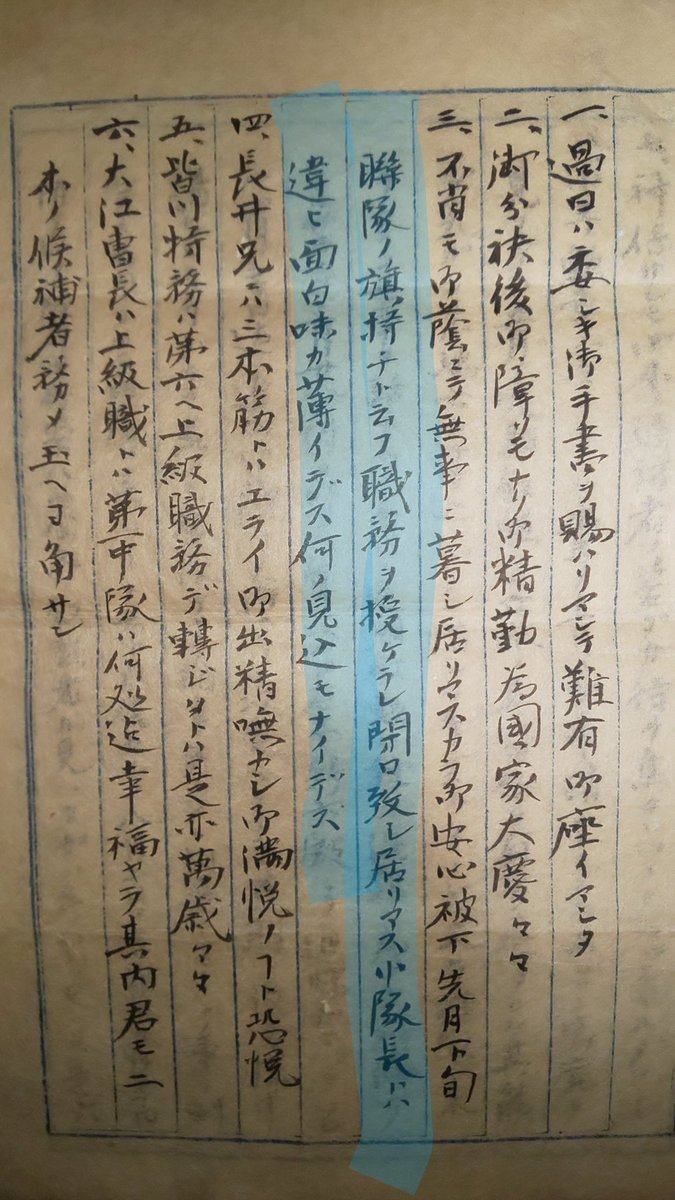 一、過日ハ委シキ御手書ヲ賜ハリマシテ難有御座イマシタ
二、御分袂後御障リモナク御精勤為國家大慶々々
三、不肖モ御蔭ニテ無事ニ暮シ居リマスカラ御安心被下先月下旬
聯隊ノ旗持チト云フ職務ヲ授ケラレ閉口致シ居リマス小隊長トハ
違ヒ面白味カ薄イデス何ノ見込モナイデス
四、長井兄ハ三本筋トハエライ御出精嘸カシ御満悦ノ〓ト恐悦
五、皆川特務ハ第六ヘ上級職務デ轉ジタトハ是亦萬歳々々
六、大江曹長ハ上級職トハ第一中隊ハ何処迠幸福ヤラ其内君モ二
本ノ候補者務メ玉ヘヨ角サン